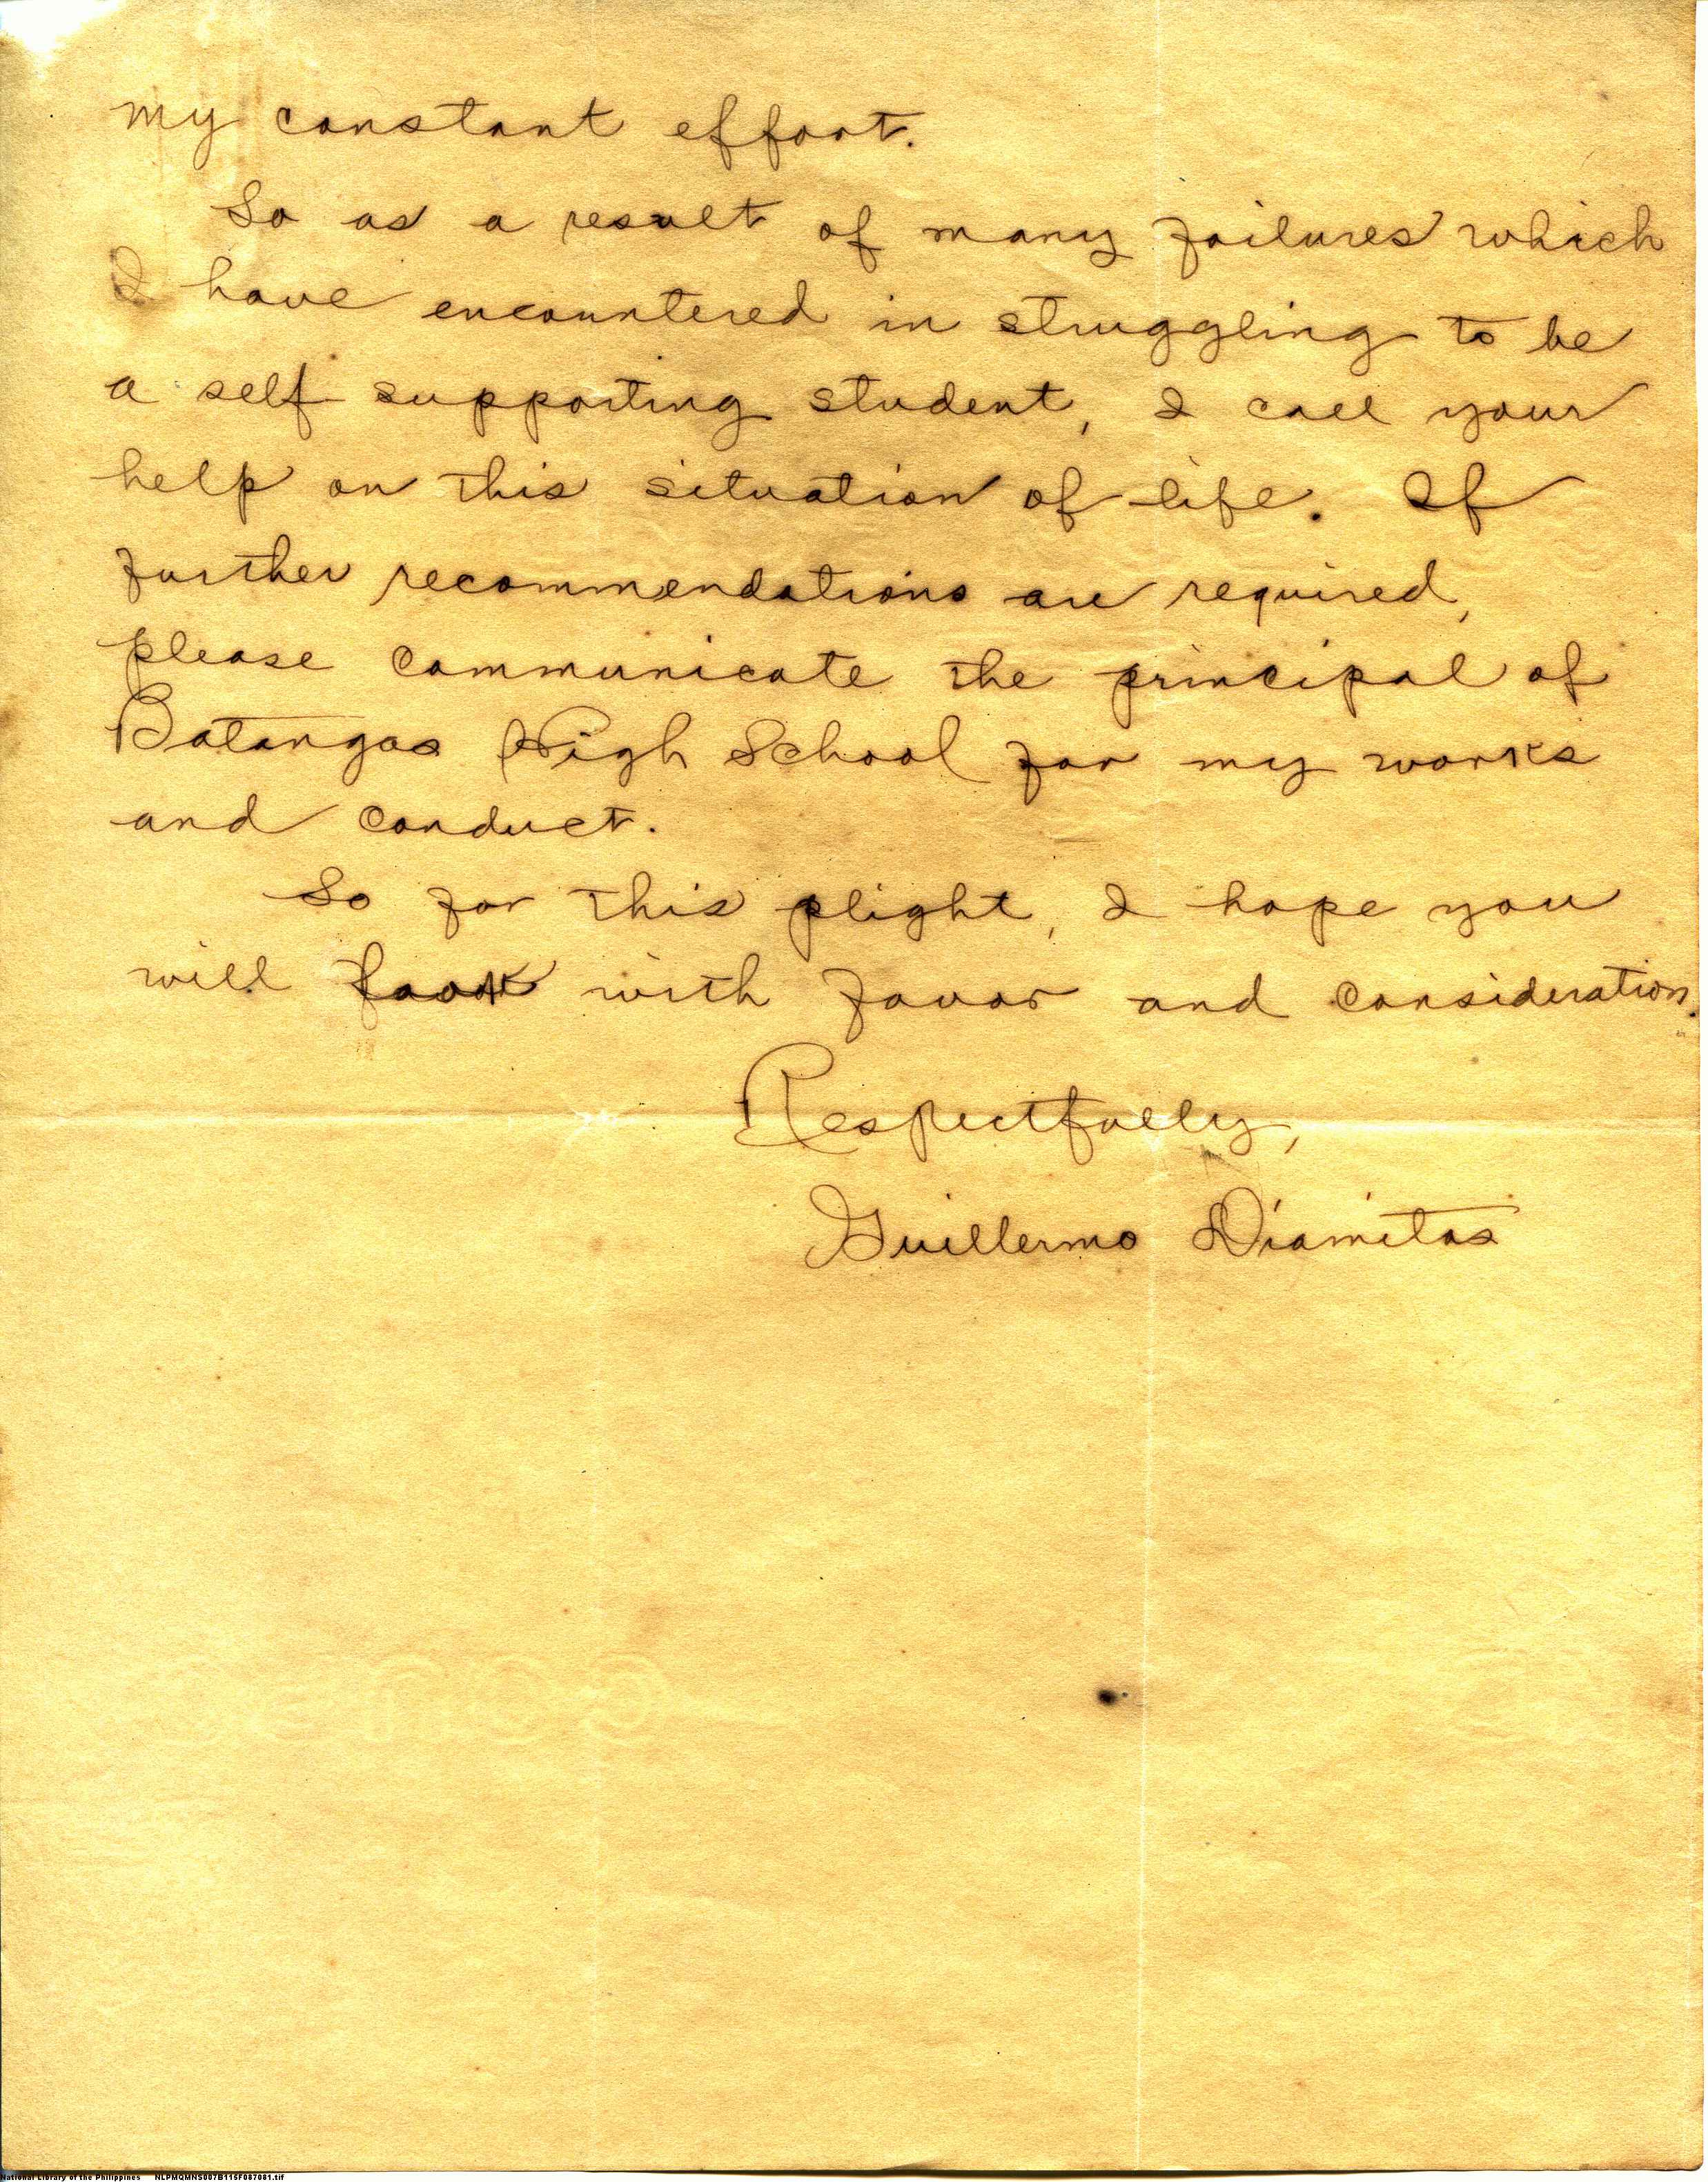 my constant effort.
So as a result of many failures which
I have encountered in struggling to be
a self supporting student, I call your
help on this situation of life. If
further recommendations are required,
please communicate the principal of
Batangas High School for my works
and conduct.
So for this plight, I hope you
will look with favor and consideration.
Respectfully,
Guillermo Diamitas
National Library of the Philippines NLPMQMNS007B115F087081.tif